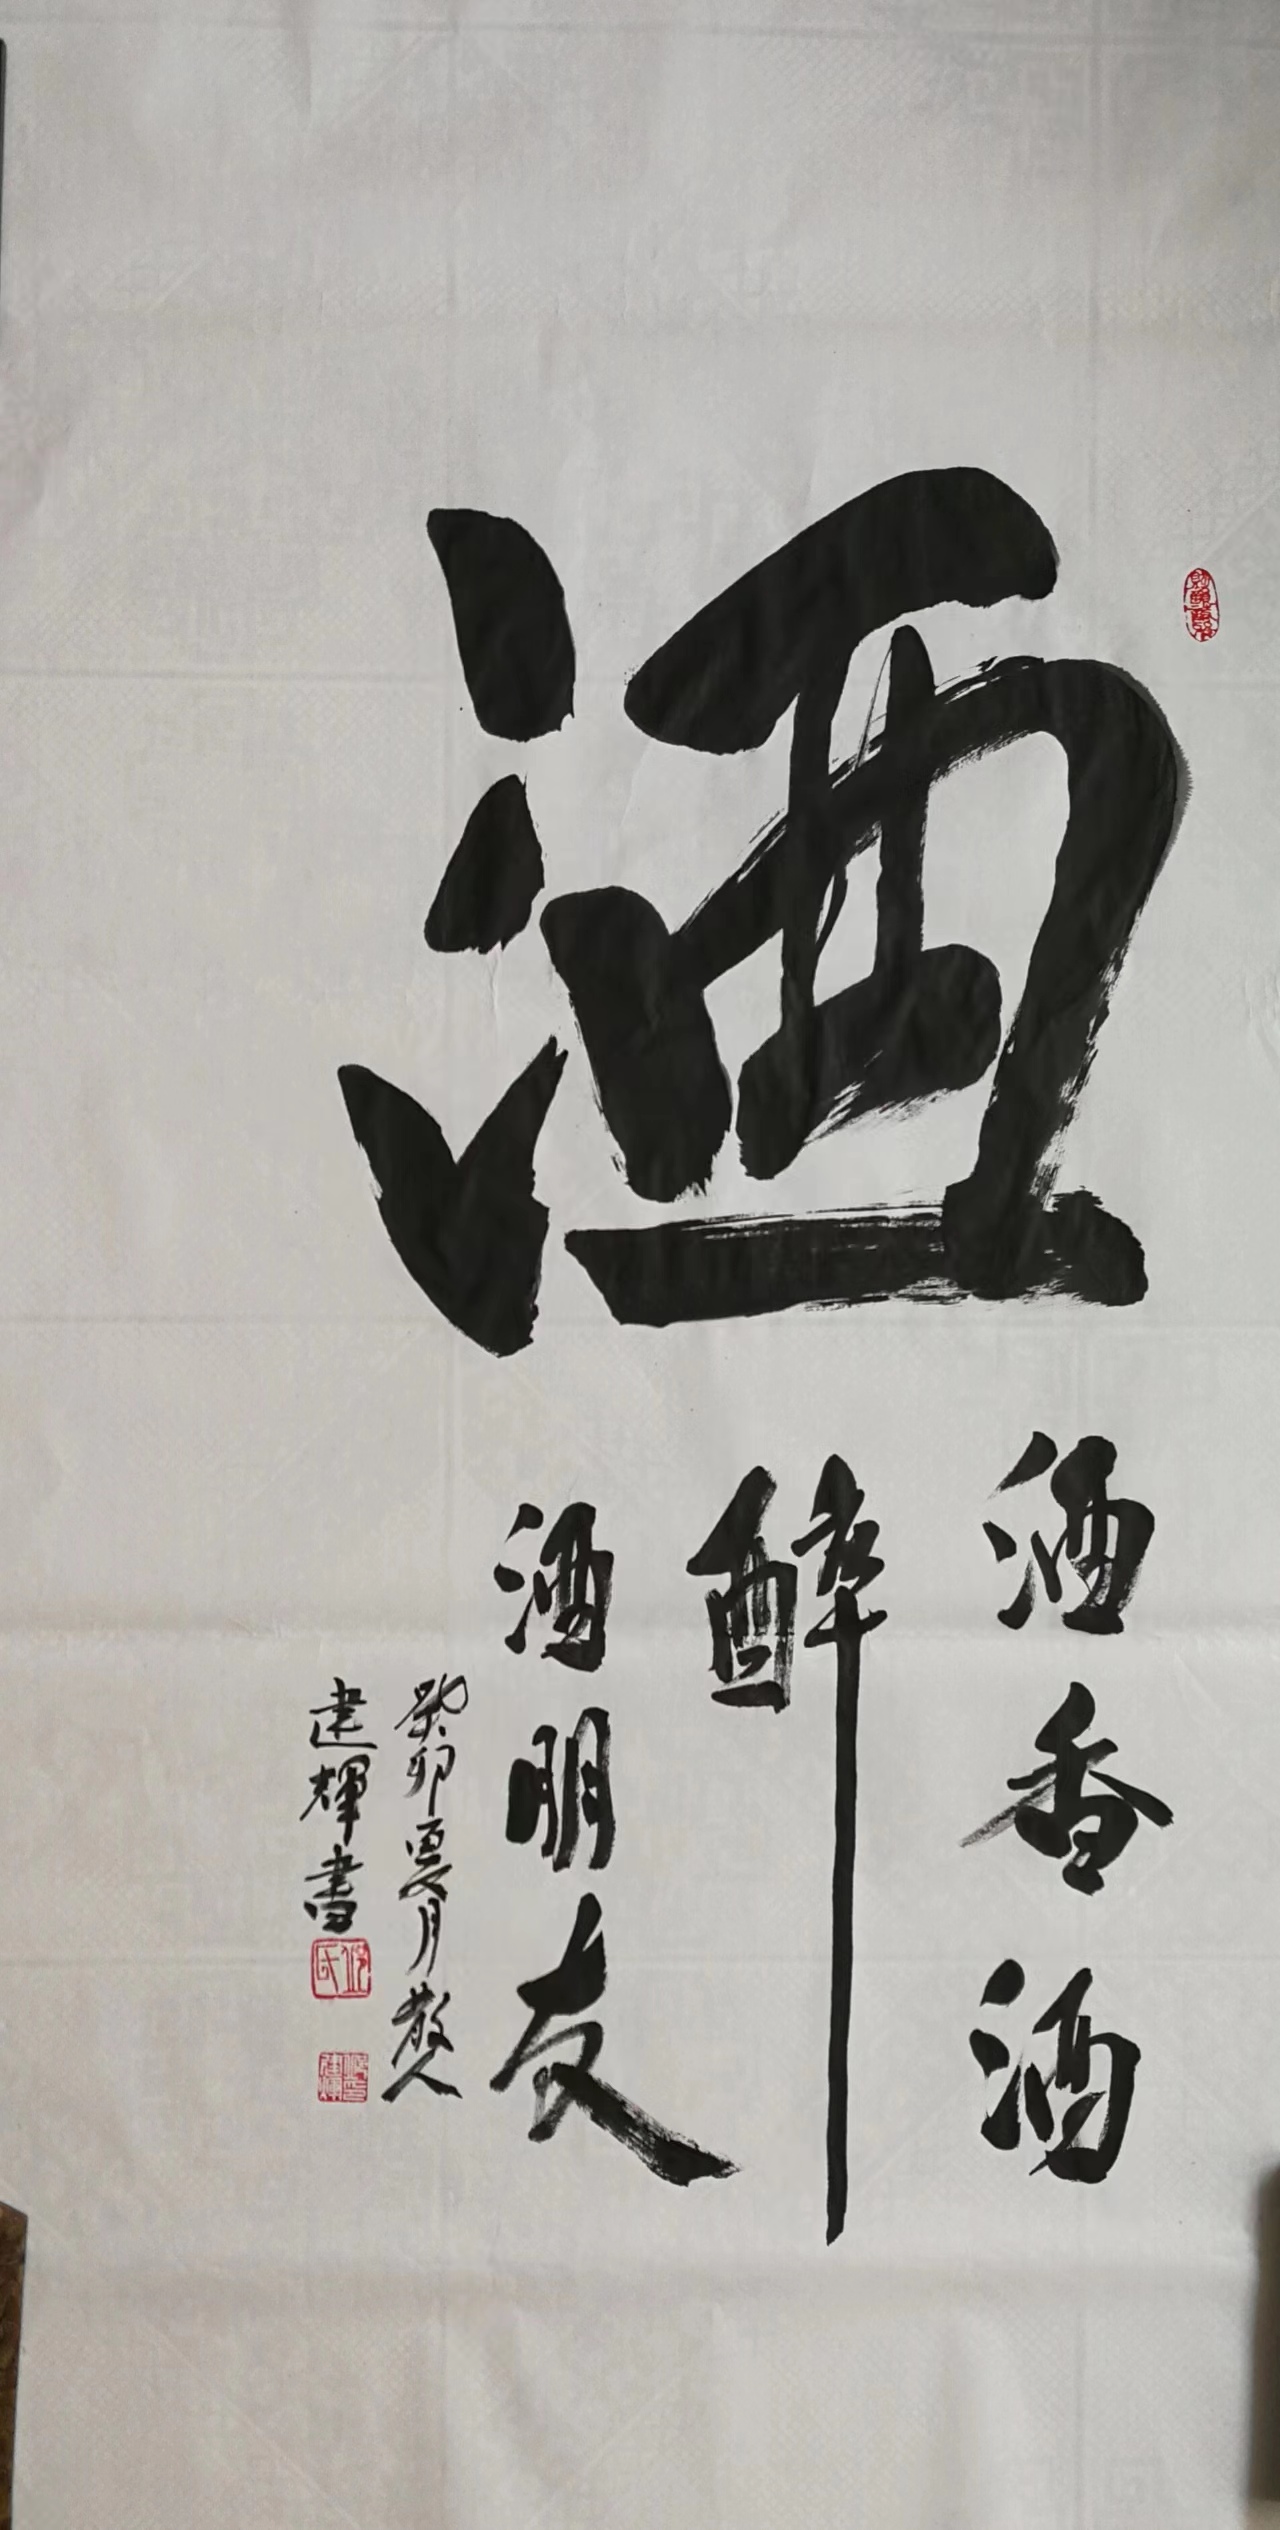 酒
酒香酒
醉
酒朋友
癸卯夏月散人
建輝書